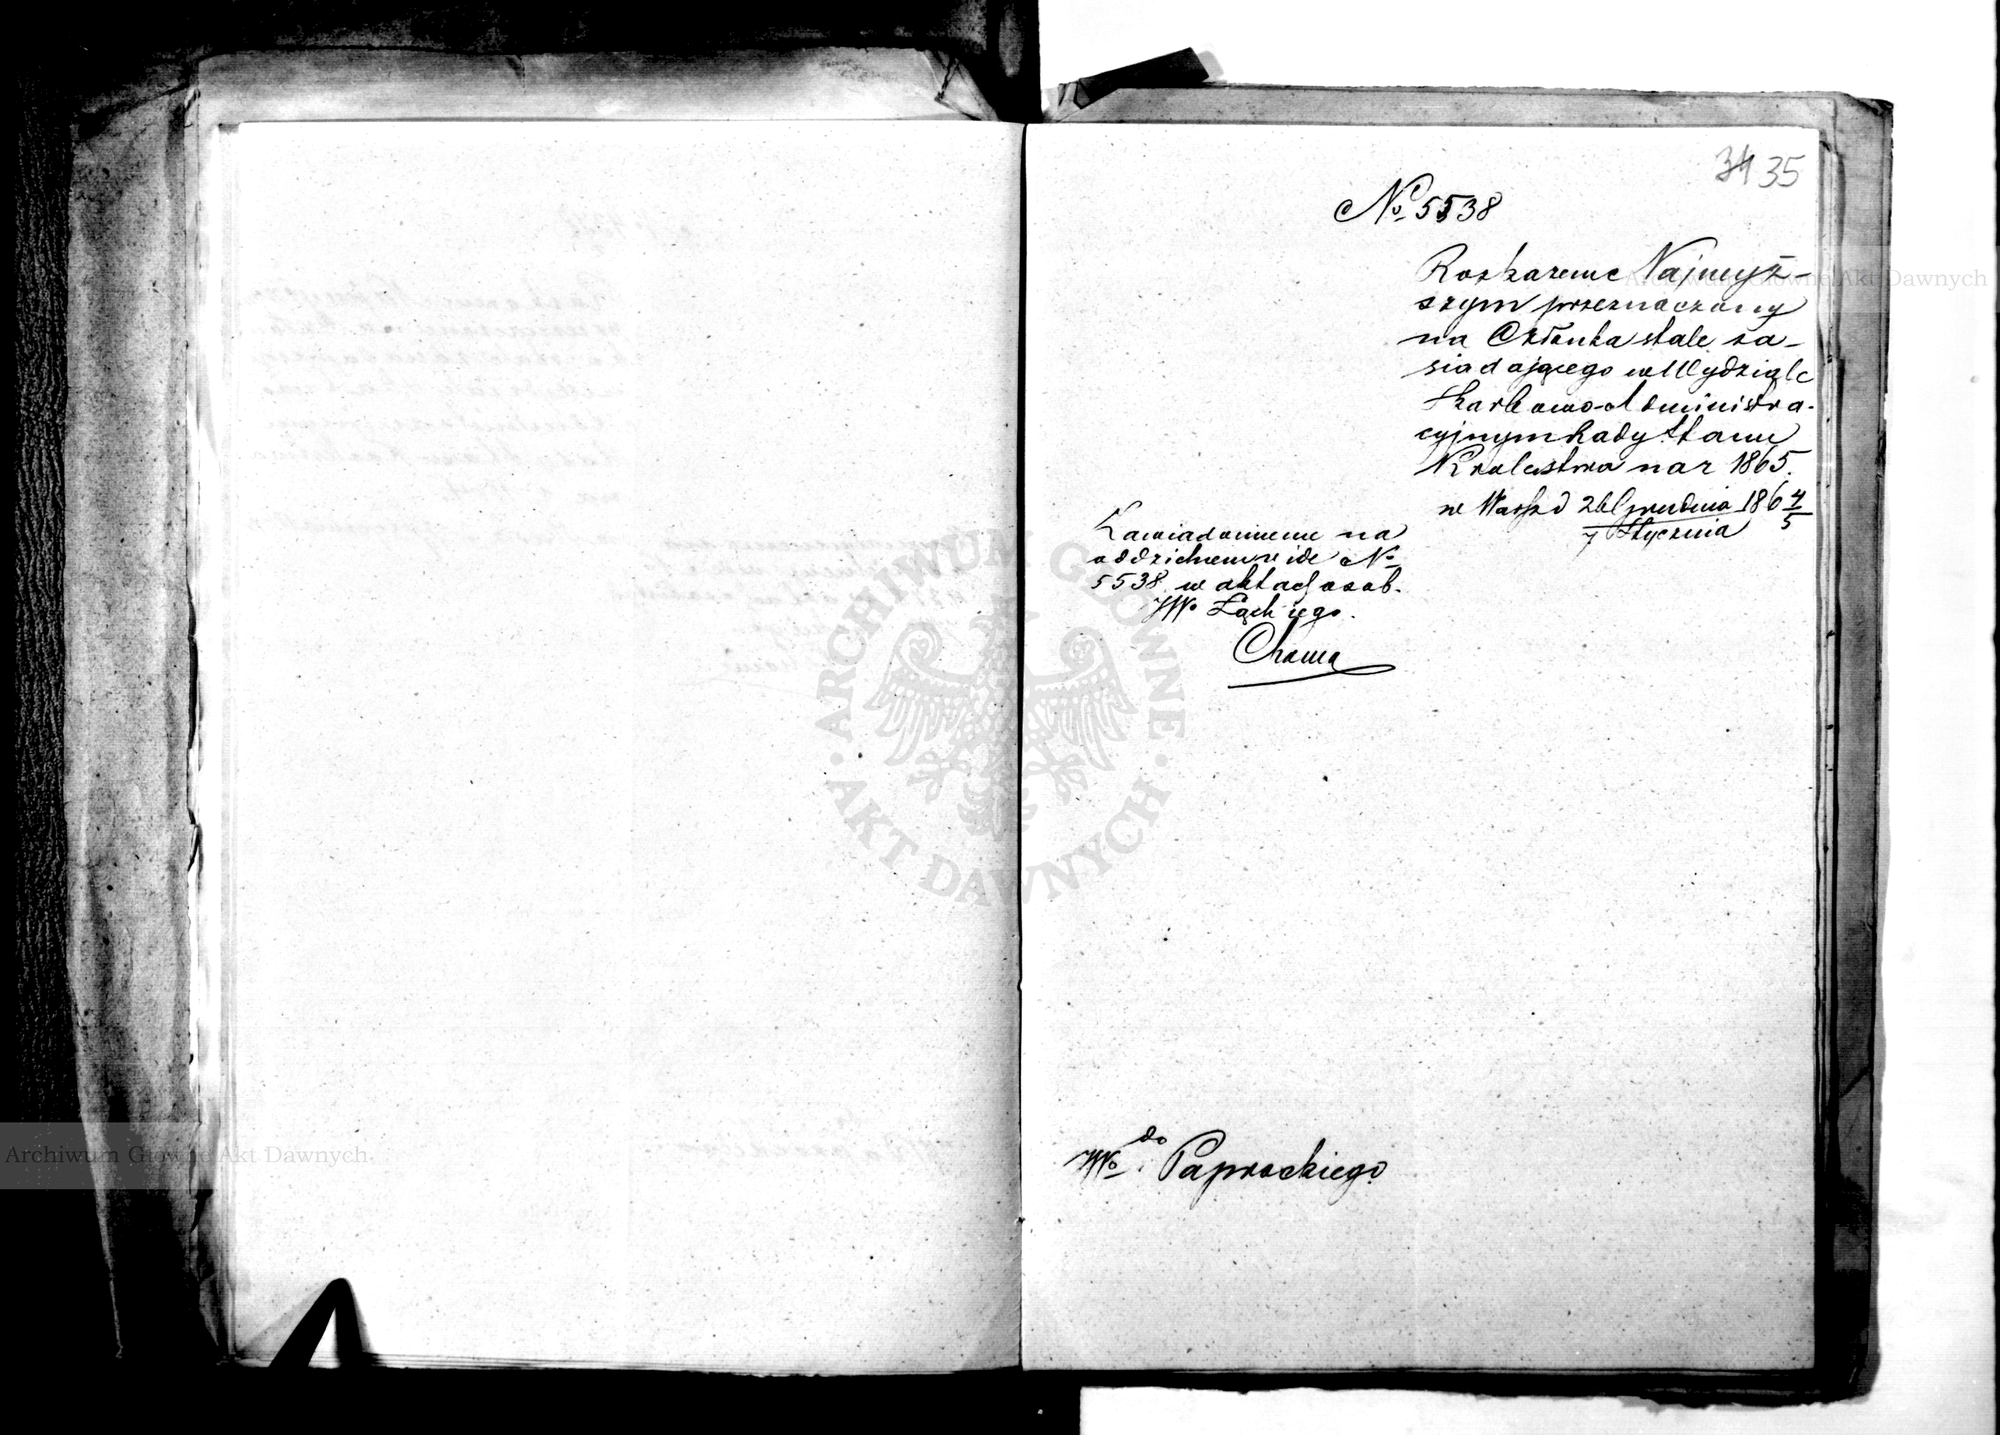 34 35
No 5538
Rozkazem Najwyż-
szym przeznaczony
na Członka stale za-
siadającego w Wydziale
Skarbowo-Administra-
cyjnym Rady Stanu
Królestwa na r 1865.
w Warsz d 26 Grudnia 1864/5
7 Stycznia
Zawiadomienie na
oddzielnem vide No
5538 w aktach osob.
JWo Łąckiego.
do
JWo Paprockiego
ARCHIWUM GŁÓWNE
AKT DAWNYCH
Archiwum Główne Akt Dawnych
Archiwum Główne Akt Dawnych